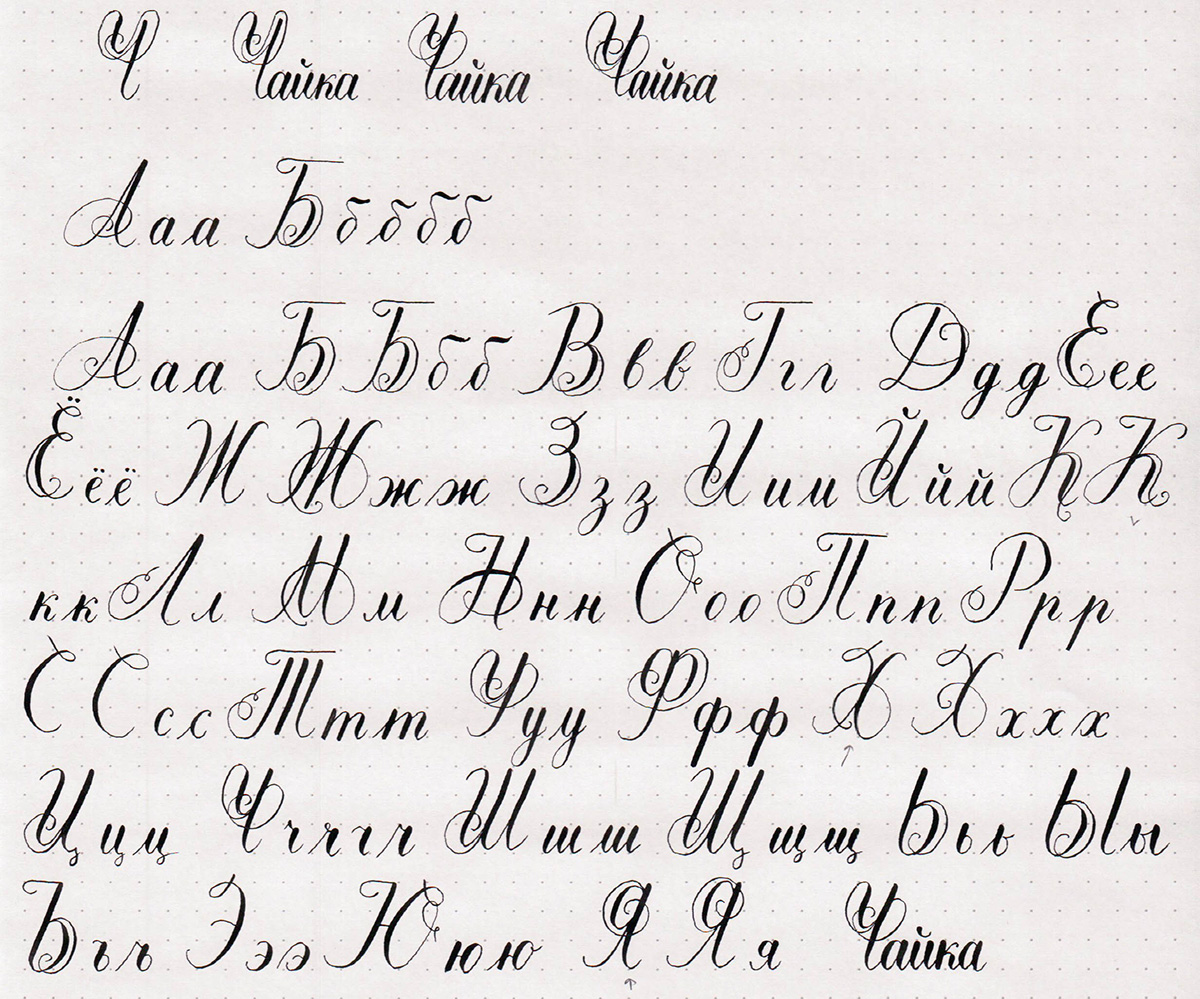 Ч Чайка Чайка Чайка
Ааа Ббббб
Ааа ББбб Ввв Ггг Ддд Ѐее
Ёёё ЖЖжж Ззз Иии Ййй КК
кк Лл Мм Ннн Ооо Ппп Ррр
ССсс Ттт Ууу Ффф ХХххх
Ццц Ччччч Шшш Щщщ Ььь Ыы
Ъъъ Эээ Ююю ЯЯя Чайка